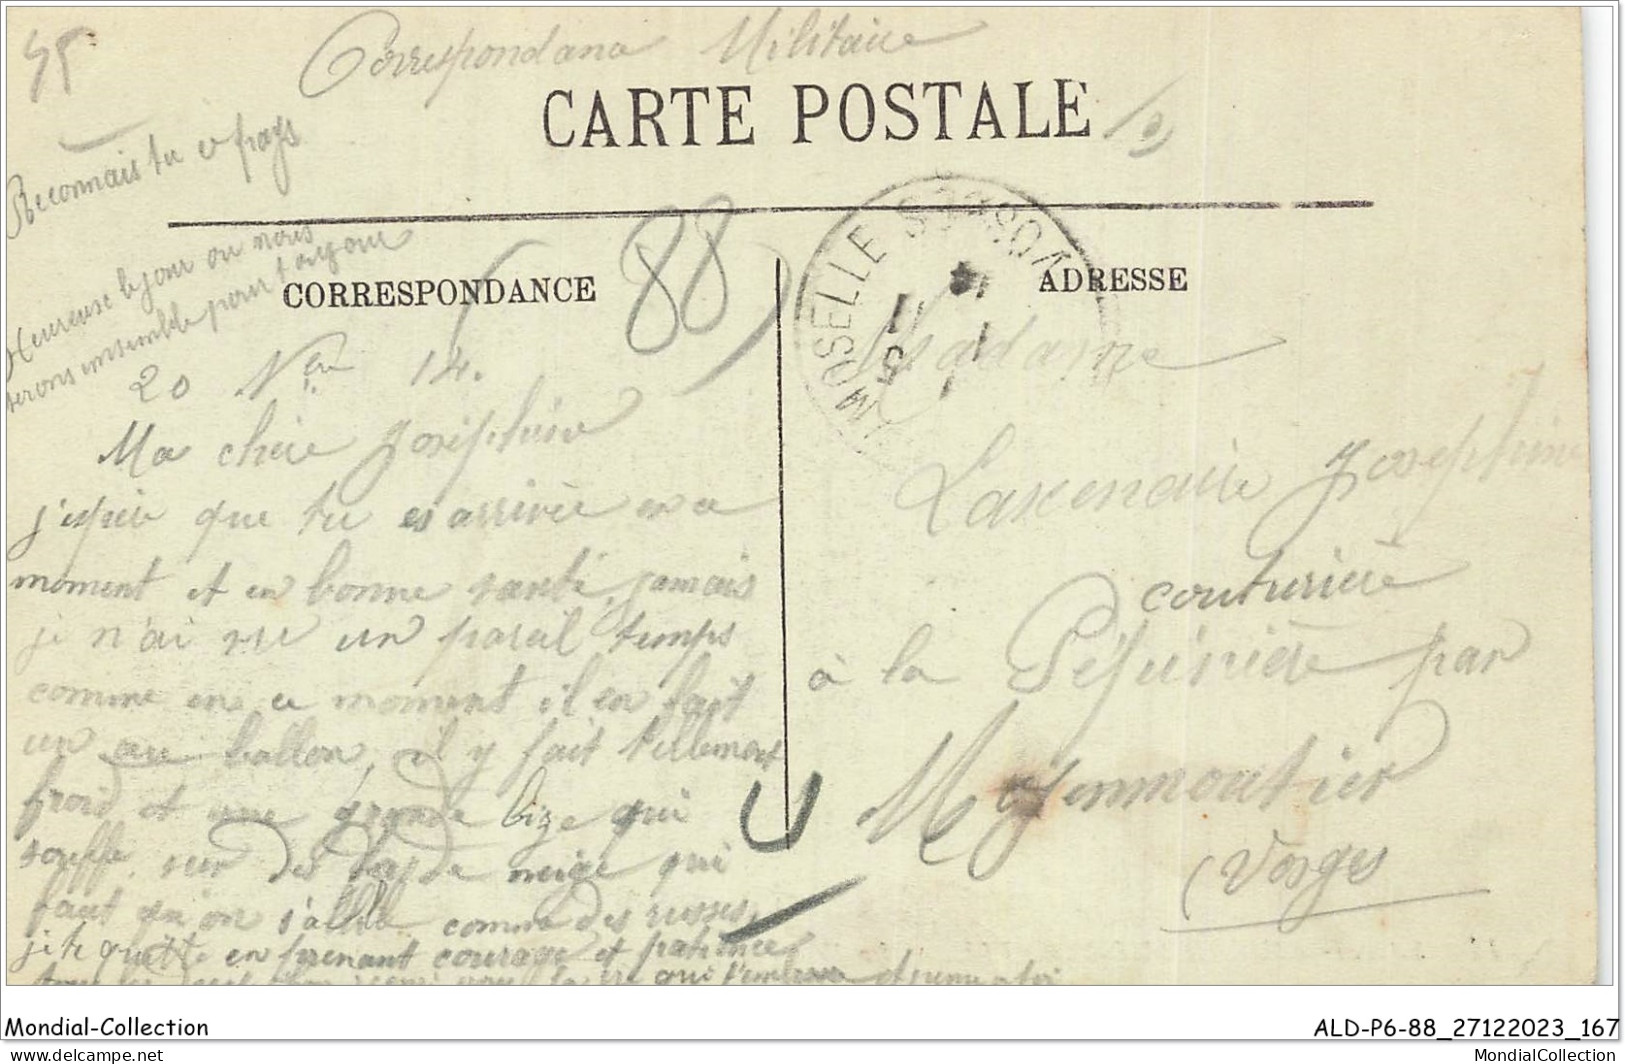 Correspondance Militaire
45
CARTE POSTALE
Reconnais tu ce pays
Heureuse le jour ou nous
serons ensemble pour toujour
88
CORRESPONDANCE
ADRESSE
MOSELLE VOSGES
20 Nbre 14.
Ma chère Joséphine
j'espère que tu es arrivée en ce
moment et en bonne santé, jamais
je n'ai vu un pareil temps
comme en ce moment il en fait
un au ballon, il y fait tellement
froid et une grande bize qui
souffle sur des tas de neige qui
faut qu'on s'abille comme des russes,
je te quitte en prenant courage et patience
qui t'embrasse
Madame
Laxenaire Joséphine
couturière
à la Pépinière par
Moyenmoutier
(Vosges
Mondial-Collection
ALD-P6-88_27122023_167
delcampe.net
MondialCollection